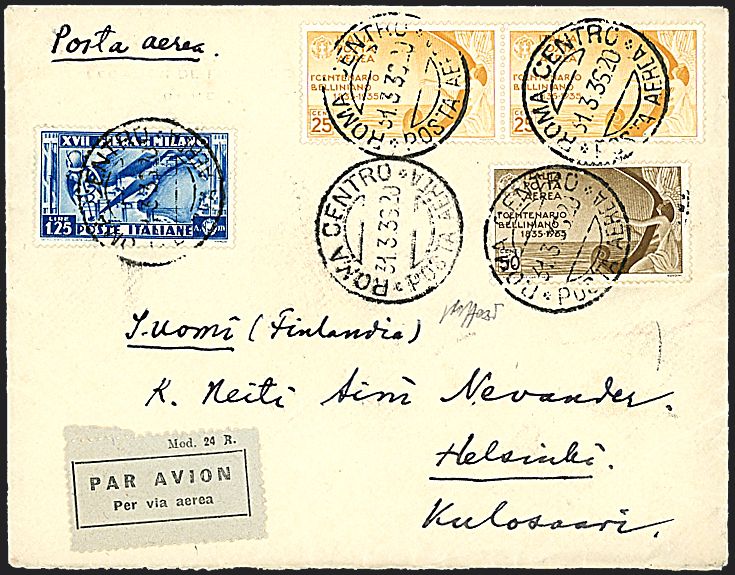 Posta aerea.
POSTA
AEREA
I CENTENARIO
BELLINIANO
1835-1935
CENT
25
ROMA CENTRO * POSTA AEREA *
31.3.36.20
POSTA
AEREA
I CENTENARIO
BELLINIANO
1835-1935
CENT
25
ROMA CENTRO * POSTA AEREA *
31.3.36.20
XVII MILA
LIRE
1.25 POSTE ITALIANE
ROMA CENTRO * POSTA AEREA *
31.3.36.20
POSTA
AEREA
I CENTENARIO
BELLINIANO
1835-1935
50
ROMA CENTRO * POSTA AEREA *
31.3.36.20
Suomi (Finlandia)
K. Neiti Aini Nevander.
Helsinki.
Kulosaari.
Mod. 24 R.
PAR AVION
Per via aerea